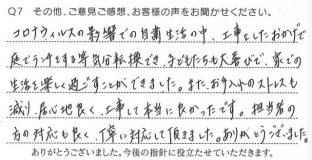 Q7 その他、ご意見ご感想、お客様の声をお聞かせください。
コロナウィルスの影響での自粛生活の中、工事をしたおかげで
庭でランチをする等気分転換でき、子どもたちも大喜びで、家での
生活を楽しく過ごすことができました。また、お手入れのストレスも
減り、居心地良く、工事して本当に良かったです。担当者の
方の対応も良く、丁寧に対応して頂きました。ありがとうございました。
ありがとうございました。今後の指針に役立たせていただきます。